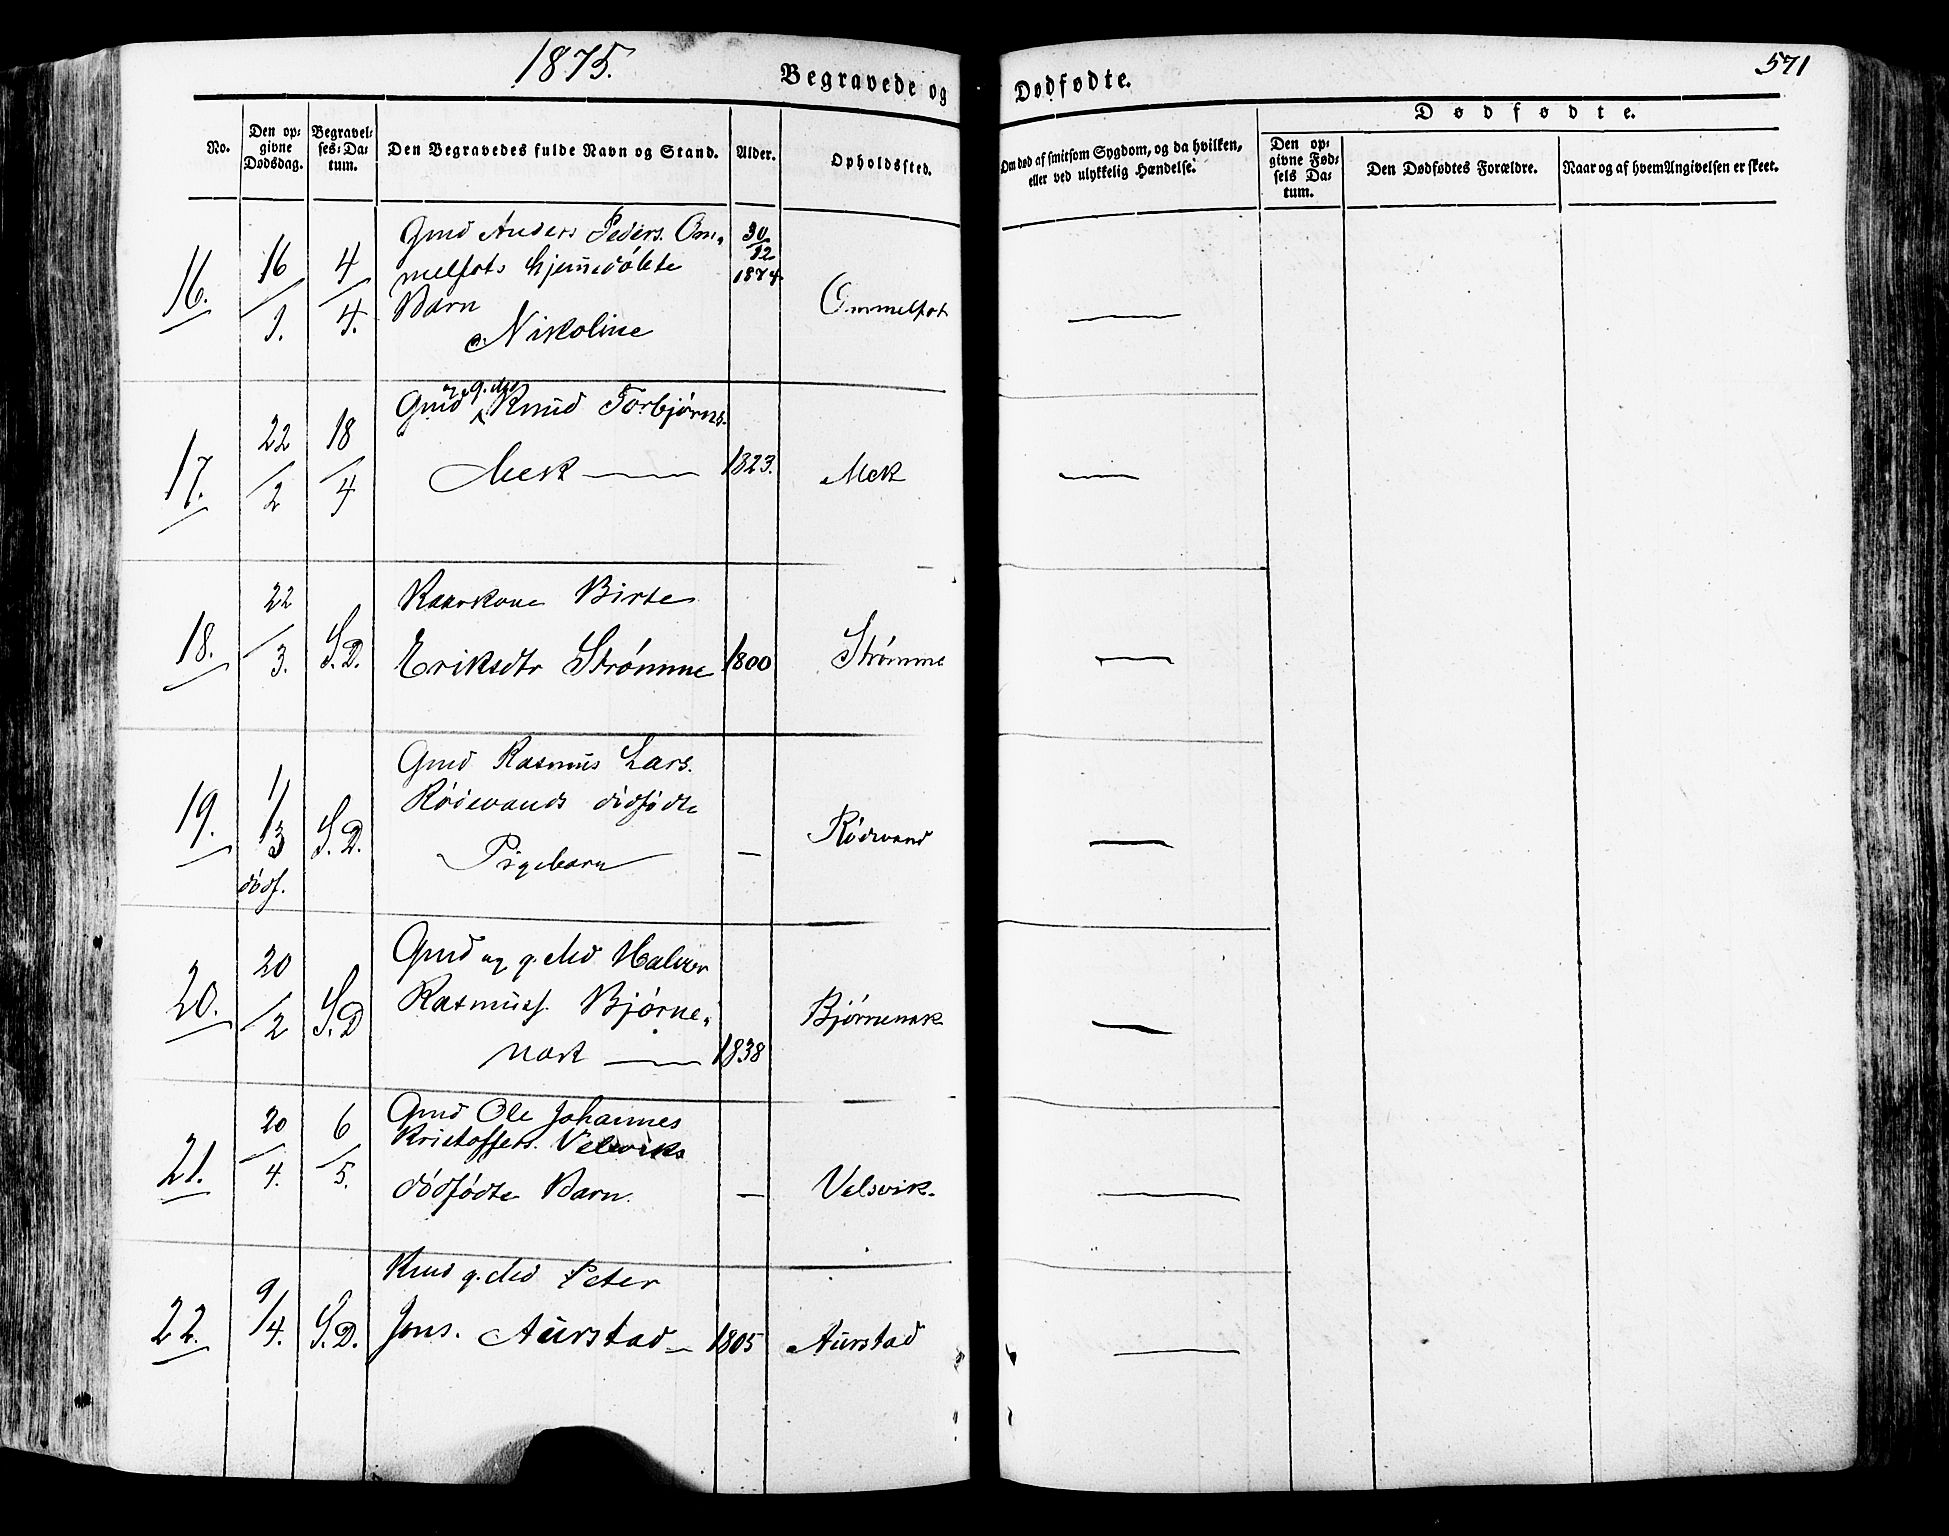 1875.
Begravede og Dødfødte.
571
No.
Den op-
givne
Dødsdag.
Begravel-
ses-Da-
tum.
Den Begravedes fulde Navn og Stand.
Alder.
Opholdssted.
Om død af smitsom Sygdom, og da hvilken,
eller ved ulykkelig Hændelse.
Dødfødte.
Den op-
givne Fød-
sels Da-
tum.
Den Dødfødtes Forældre.
Naar og af hvem Angivelsen er skeet.
16.
16/1.
4/4.
Gmd Anders Peders. Om-
melfots hjemmedøbte
Barn
Nikoline
30/12
1874
Ommelfot
17.
22/2
18/4
Gmd og g. Md Knud Torbjørns.
Mek
1823.
Mek
18.
22/3.
S.D.
Kaarkone Birte
Eriksdtr Strømme
1800
Strømme
19.
1/3
dødf.
S.D.
Gmd Rasmus Lars.
Rødevands dødfødte
Pigebarn
—
Rødevand
20.
20/2
S.D
Gmd og g. Md Halvor
Rasmuss. Bjørne-
nak
1838
Bjørnenak
21.
20/4.
6/5.
Gmd Ole Johannes
Kristoffers. Velsviks
dødfødte Barn.
—
Velsvik.
22.
9/4.
S.D.
g. Md Peter
Jons. Aurstad
1805
Aurstad